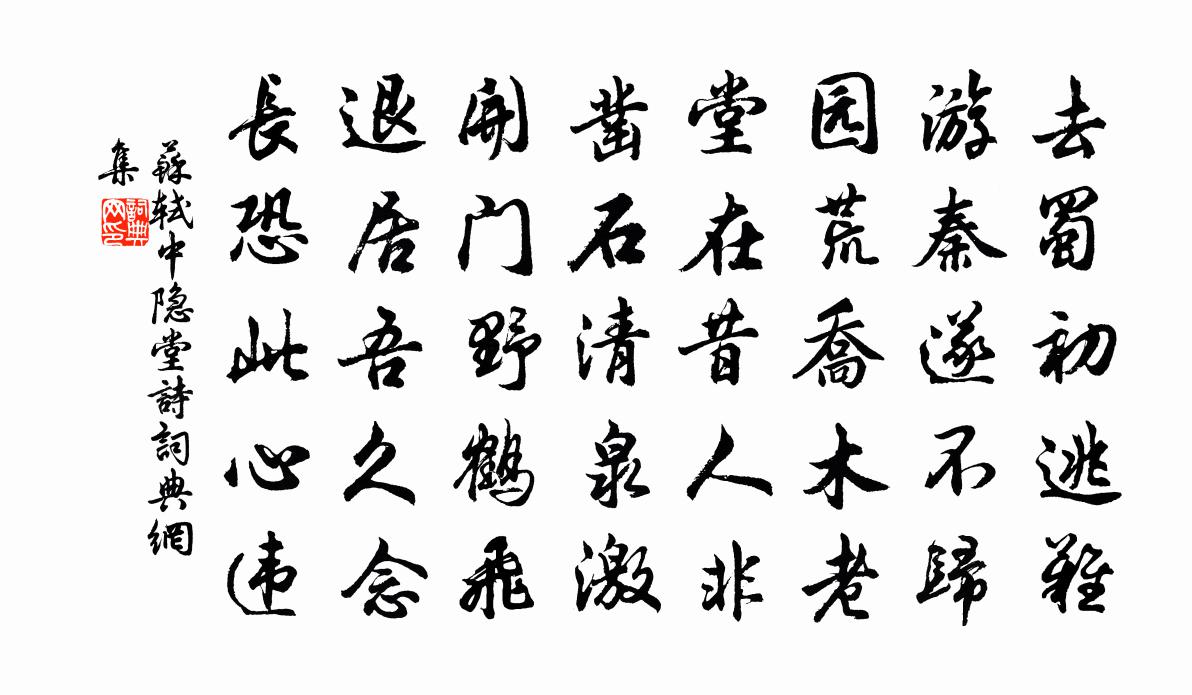 去蜀初逃難
游秦遂不歸
园荒喬木老
堂在昔人非
凿石清泉激
開门野鶴飛
退居吾久念
長恐此心违
蘇軾中隐堂詩詞典網
集
詞典网印